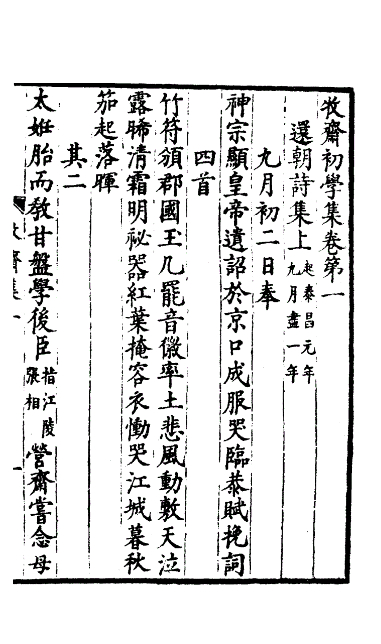 牧齋初學集卷第一
還朝詩集上起泰昌元年九月盡一年
九月初二日奉
神宗顯皇帝遺詔於京口成服哭臨恭賦挽詞
四首
竹符頒郡國玉几罷音徽率土悲風動敷天泣
露晞清霜明祕器紅葉掩容衣慟哭江城暮秋
笳起落暉
其二
太姙胎而教甘盤學後臣指江陵張相營齋嘗念母